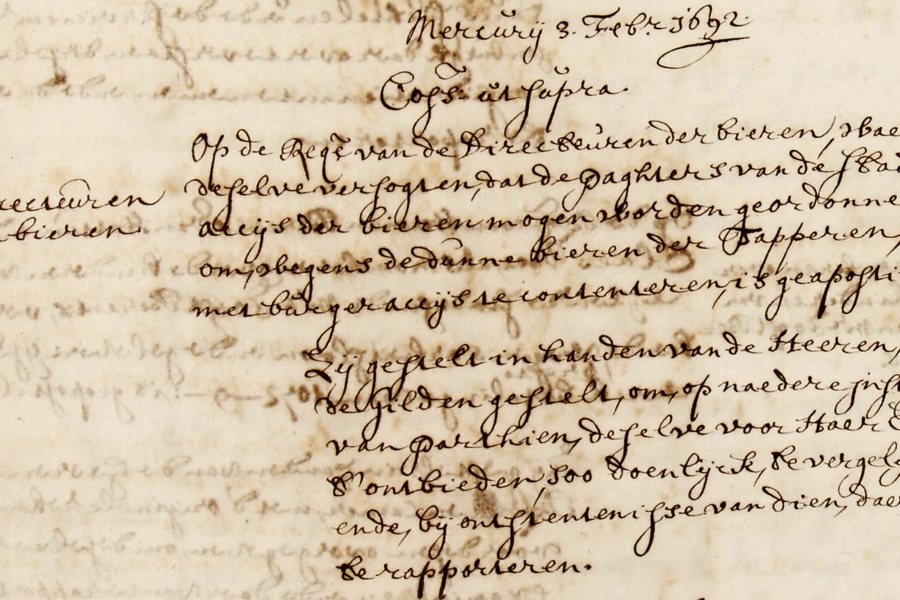 Mercurij 3. Febr. 1692.
Coss: ut supra.
Op de Reqte van de Directeuren der bieren, wae
deselve versogten, dat de Paghters van de Stad
accijs der bieren mogen worden geordonne
om, wegens de dunne bieren der Tapperen,
met burger accijs te contenteren, is geaposti
recteuren
bieren.
Zij gestelt in handen van de Heeren,
de Gilden gestelt, om, op naedere inst
van Parthien, deselve voor Haer
t'ontbieden, soo doenlijck, te vergel
ende, bij ontstentenisse van dien, daer
te rapporteren.